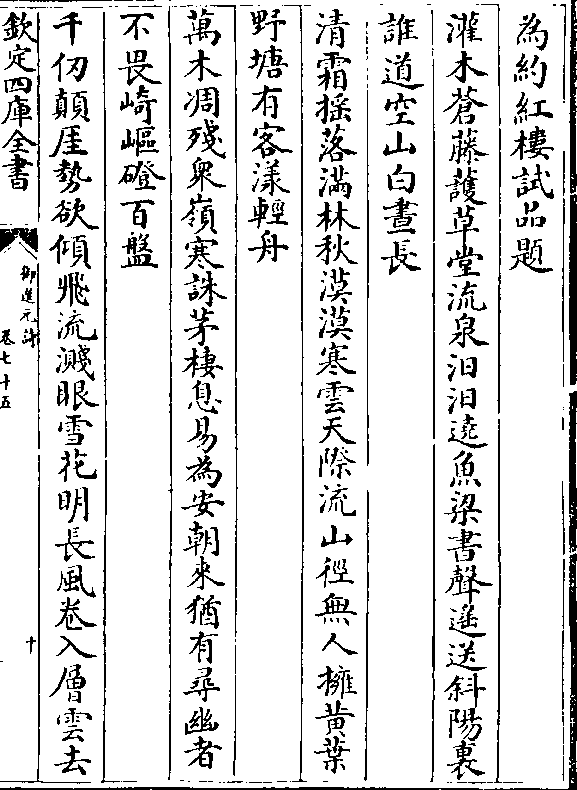 為約紅樓試品題
灌木蒼藤護草堂流泉汩汩遶魚梁書聲遥送斜陽裏
誰道空山白晝長
清霜揺落滿林秋漠漠寒雲天際流山徑無人擁黄葉
野塘有客漾輕舟
萬木凋殘衆嶺寒誅茅棲息易為安朝來猶有尋幽者
不畏崎嶇磴百盤
千仞顛厓勢欲傾飛流濺眼雪花明長風卷入層雲去
欽定四庫全書
御選元詩
卷七十五
十